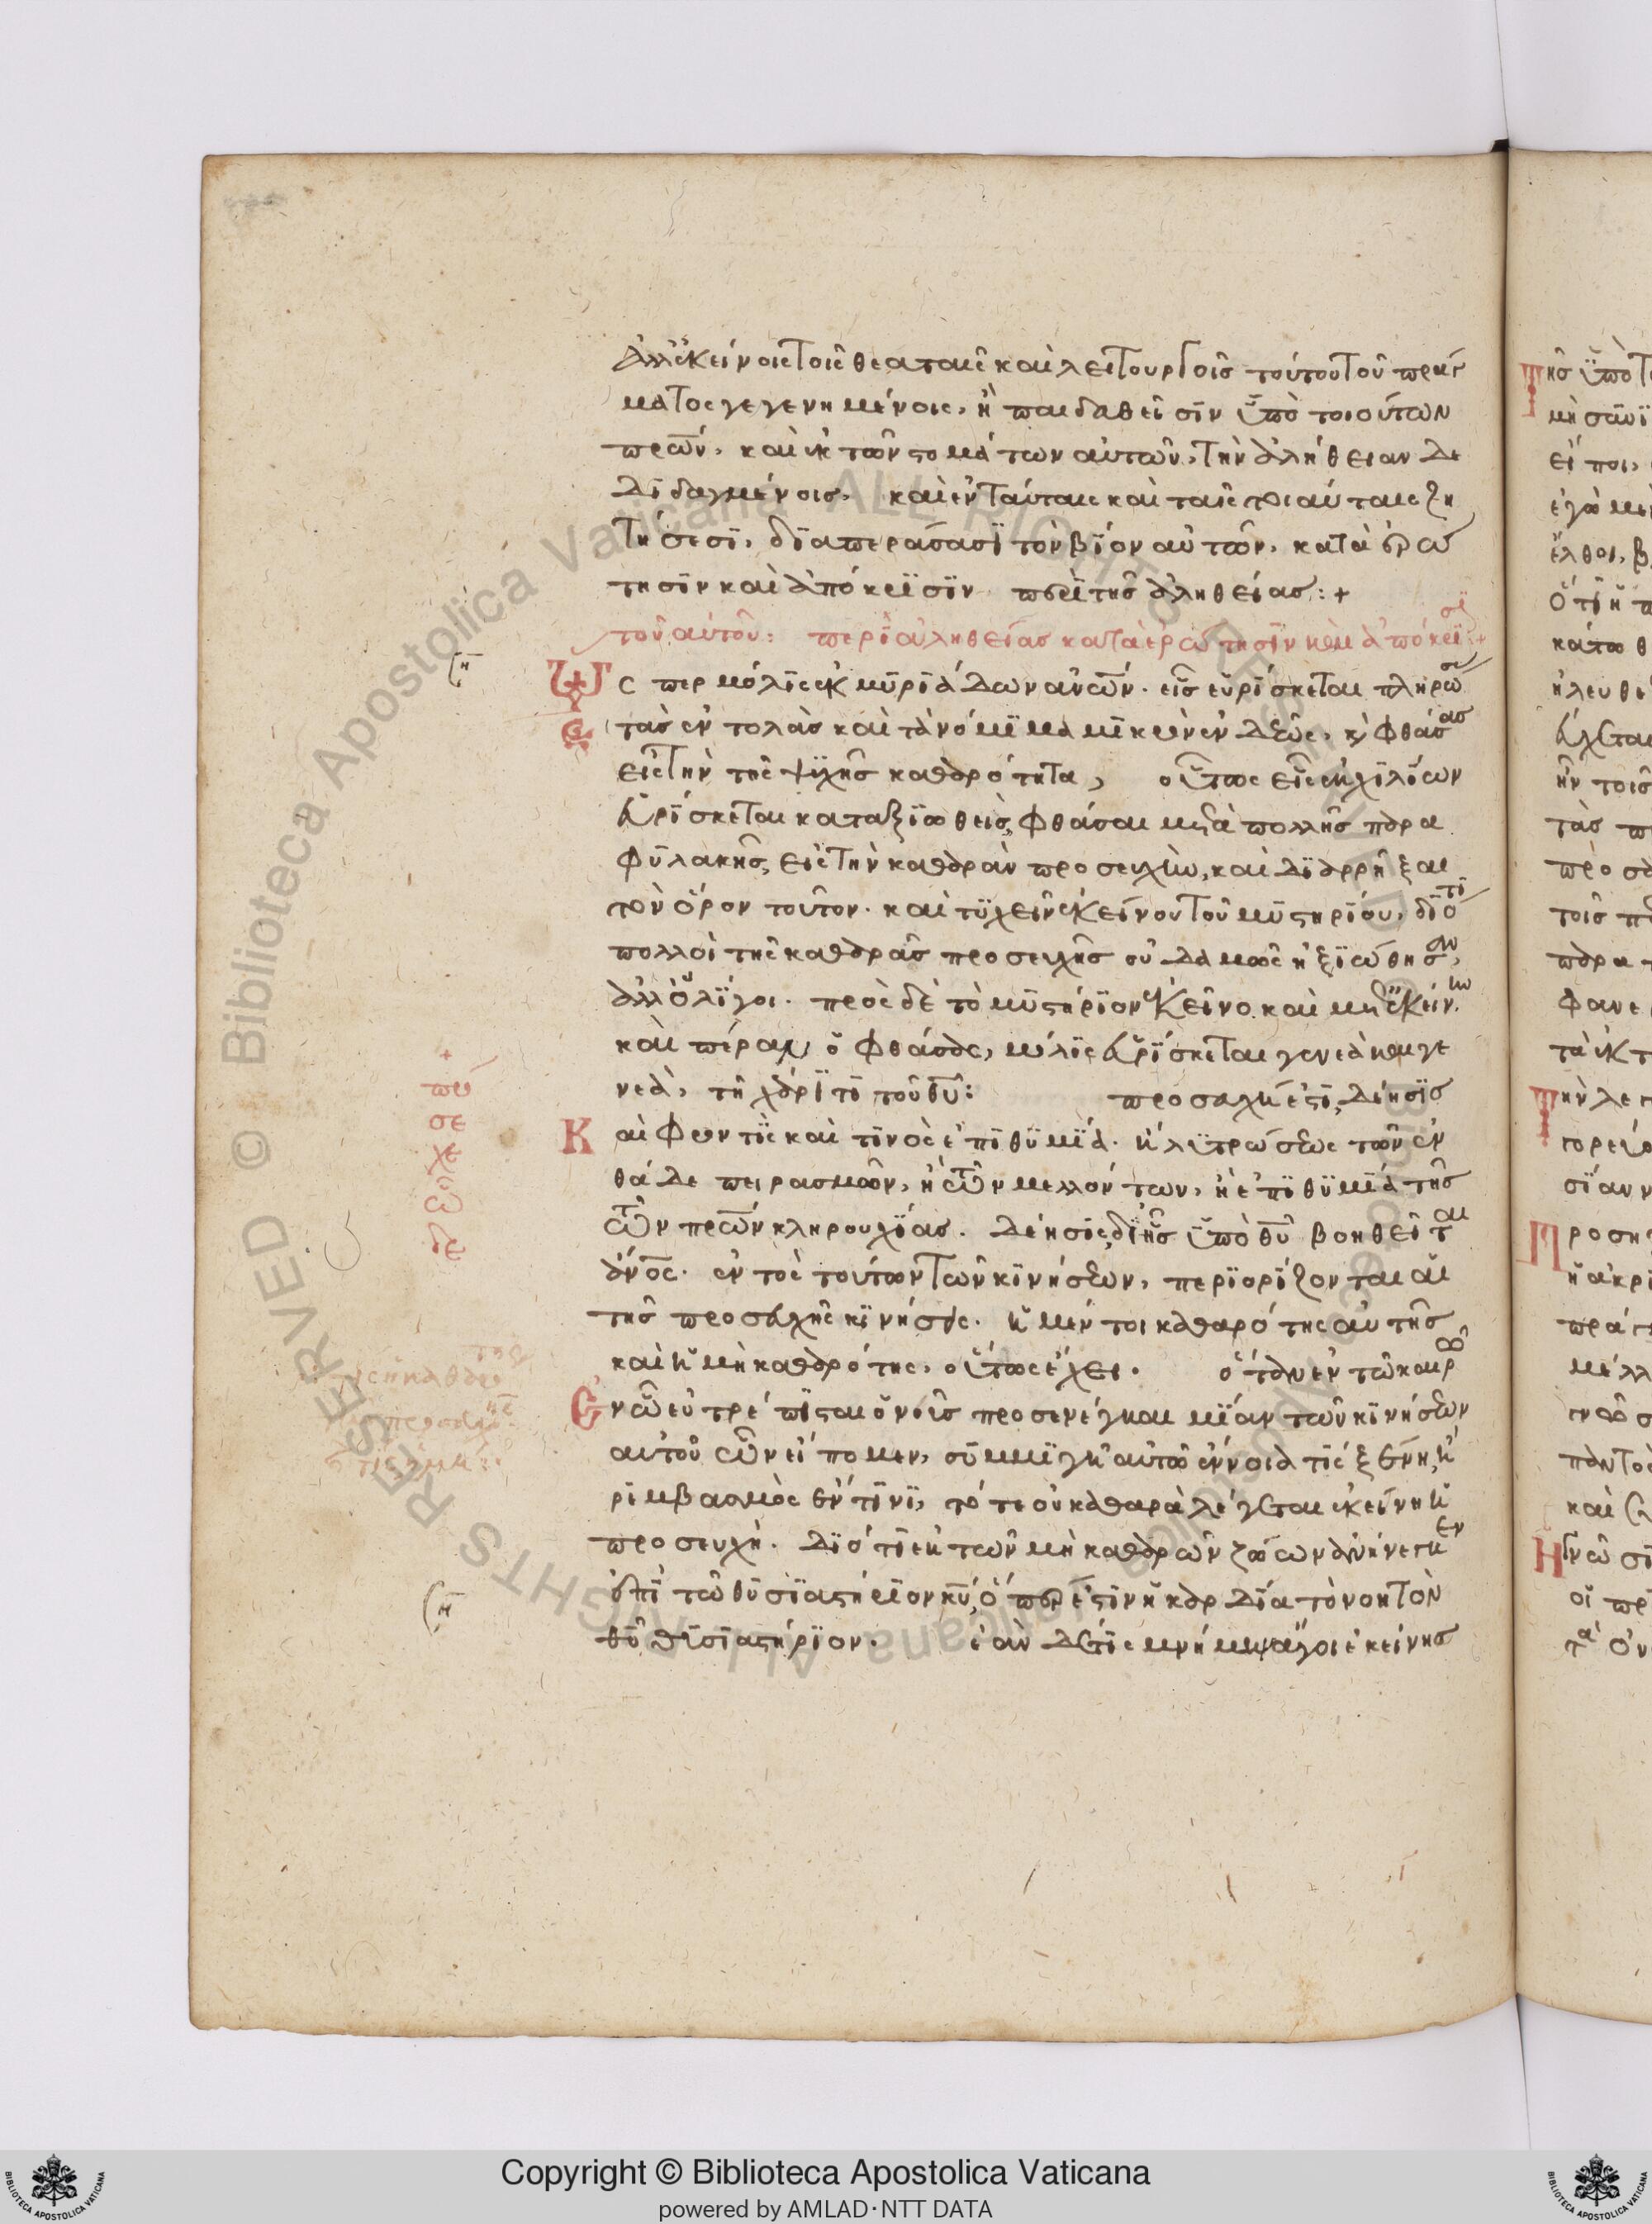 ἀλλ' ἐκείνοις τοῖς θεαταῖς καὶ λειτουργοῖς τούτου τοῦ πράγ
ματος γεγενημένοις, ἢ παιδαθεῖσιν ὑπὸ τοιούτων
πρων, καὶ ἐκ τῶν στομάτων αὐτῶν, τὴν ἀλήθειαν δε
διδαγμένοις, καὶ ἐν ταύταις καὶ ταῖς τοιαύταις ζη
τήσεσι, διαπεράσασι τὸν βίον αὐτῶν, κατὰ ἐρώ
τησιν καὶ ἀπόκρισιν περὶ τῆς ἀληθείας :+
τοῦ αὐτοῦ: περὶ ἀληθείας κατὰ ἐρώτησιν καὶ ἀπόκρισι+
Ὥσπερ μόλις ἐκ μυριάδων ανων εἷς εὑρίσκεται πληρώσας
τὰς ἐντολὰς καὶ τὰ νόμιμα μικρὸν ἐνδεῶς, κ φθάσας
εἰς τὴν τῆς ψυχῆς καθαρότητα, οὕτως εἷς ἐκ χιλίων
εὑρίσκεται καταξιωθεὶς φθάσαι μετὰ πολλῆς παρα
φυλακῆς, εἰς τὴν καθαρὰν προσευχὴν, καὶ διαρρῆξαι
τὸν ὅρον τοῦτον. καὶ τυχεῖν ἐκείνου τοῦ μυστηρίου, διότι
πολλοὶ τῆς καθαρᾶς προσευχῆς οὐδαμῶς ἠξιώθησαν,
ἀλλ' ὀλίγοι. πρὸς δὲ τὸ μυστήριον ἐκεῖνο καὶ μετ' ἐκείνην
καὶ πέραν ὁ φθάσας, μόλις εὑρίσκεται γενεὰ καὶ γε
νεὰ, τῇ χάριτι τοῦ θυ: προσευχή ἐστι, δέησις
Καὶ φροντὶς καὶ τινὸς ἐπιθυμία. ἢ λυτρώσεως τῶν ἐν
θάδε πειρασμῶν, ἢ τῶν μελλόντων, ἢ ἐπιθυμία τῆς
τῶν πρων κληρουχίας. δέησις, δι' ἧς ὑπὸ θυ βοηθεῖται
ανος. ἐντὸς τούτων τῶν κινήσεων, περιορίζονται αἱ
τῆς προσευχῆς κινήσεις. ἡ μέντοι καθαρότης αὐτῆς
καὶ ἡ μὴ καθαρότης, οὕτως ἔχει. ὅταν ἐν τῷ καιρῷ
Ἐν ᾧ εὐτρέπισται ὁ νοῦς προσενέγκαι μίαν τῶν κινήσεων
αὐτοῦ ὧν εἴπομεν, συμμιγῇ αὐτῷ ἔννοιά τις ξένη, ἢ
ῥεμβασμὸς ἔν τινι, τότε οὐ καθαρὰ λέγεται ἐκείνη ἡ
προσευχή. διότι ἐκ τῶν μὴ καθαρῶν ζώων ἀνήνεγκεν
ἐπὶ τῷ θυσιαστήριον κυ, ὅπερ ἐστὶν ἡ καρδία τὸ νοητὸν
θυ θυσιαστήριον. ἐὰν δέ τις μνήμην ἄγοι ἐκείνης
+
πρό
σε
χε
ὧ
δε